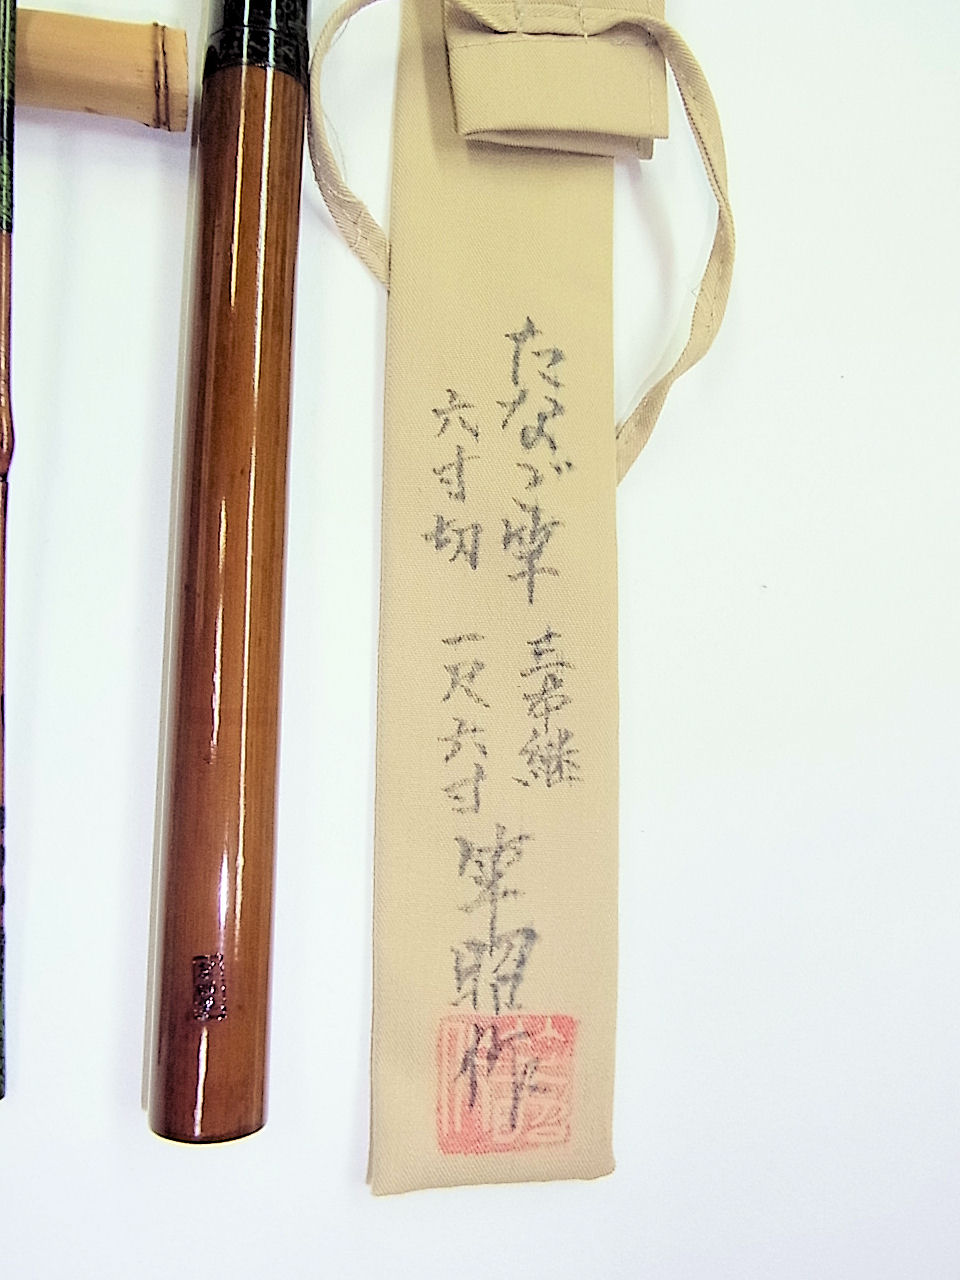 たなご竿 本継
六寸切 一尺六寸 竿昭作